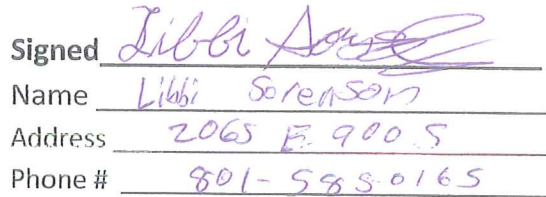 Signed Libbi Sorensen
Name Libbi Sorenson
Address 2065 E 900 S
Phone # 801-585-0165